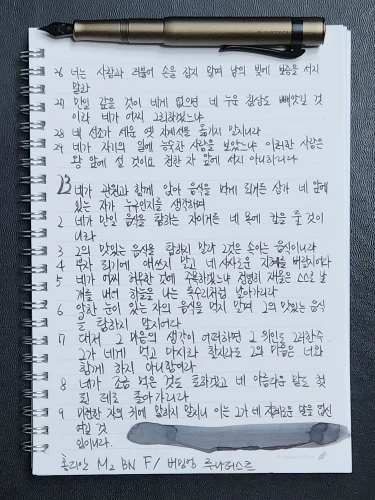 26 너는 사람과 더불어 손을 잡지 말며 남의 빚에 보증을 서지
말라
27 만일 갚을 것이 네게 없으면 네 누운 침상도 빼앗길 것
이라 네가 어찌 그리하겠느냐
28 네 선조가 세운 옛 지계석을 옮기지 말지니라
29 네가 자기의 일에 능숙한 사람을 보았느냐 이러한 사람은
왕 앞에 설 것이요 천한 자 앞에 서지 아니하리라
23 네가 관원과 함께 앉아 음식을 먹게 되거든 삼가 네 앞에
있는 자가 누구인지를 생각하며
2 네가 만일 음식을 탐하는 자이거든 네 목에 칼을 둘 것이
니라
3 그의 맛있는 음식을 탐하지 말라 그것은 속이는 음식이니라
4 부자 되기에 애쓰지 말고 네 사사로운 지혜를 버릴지어다
5 네가 어찌 허무한 것에 주목하겠느냐 정녕히 재물은 스스로 날
개를 내어 하늘을 나는 독수리처럼 날아가리라
6 악한 눈이 있는 자의 음식을 먹지 말며 그의 맛있는 음식
을 탐하지 말지어다
7 대저 그 마음의 생각이 어떠하면 그 위인도 그러한즉
그가 네게 먹고 마시라 할지라도 그의 마음은 너와
함께 하지 아니함이라
8 네가 조금 먹은 것도 토하겠고 네 아름다운 말도 헛
된 데로 돌아가리라
9 미련한 자의 귀에 말하지 말지니 이는 그가 네 지혜로운 말을 업신
여길 것
임이니라
홍디안 M2 BN F/ 버밍엄